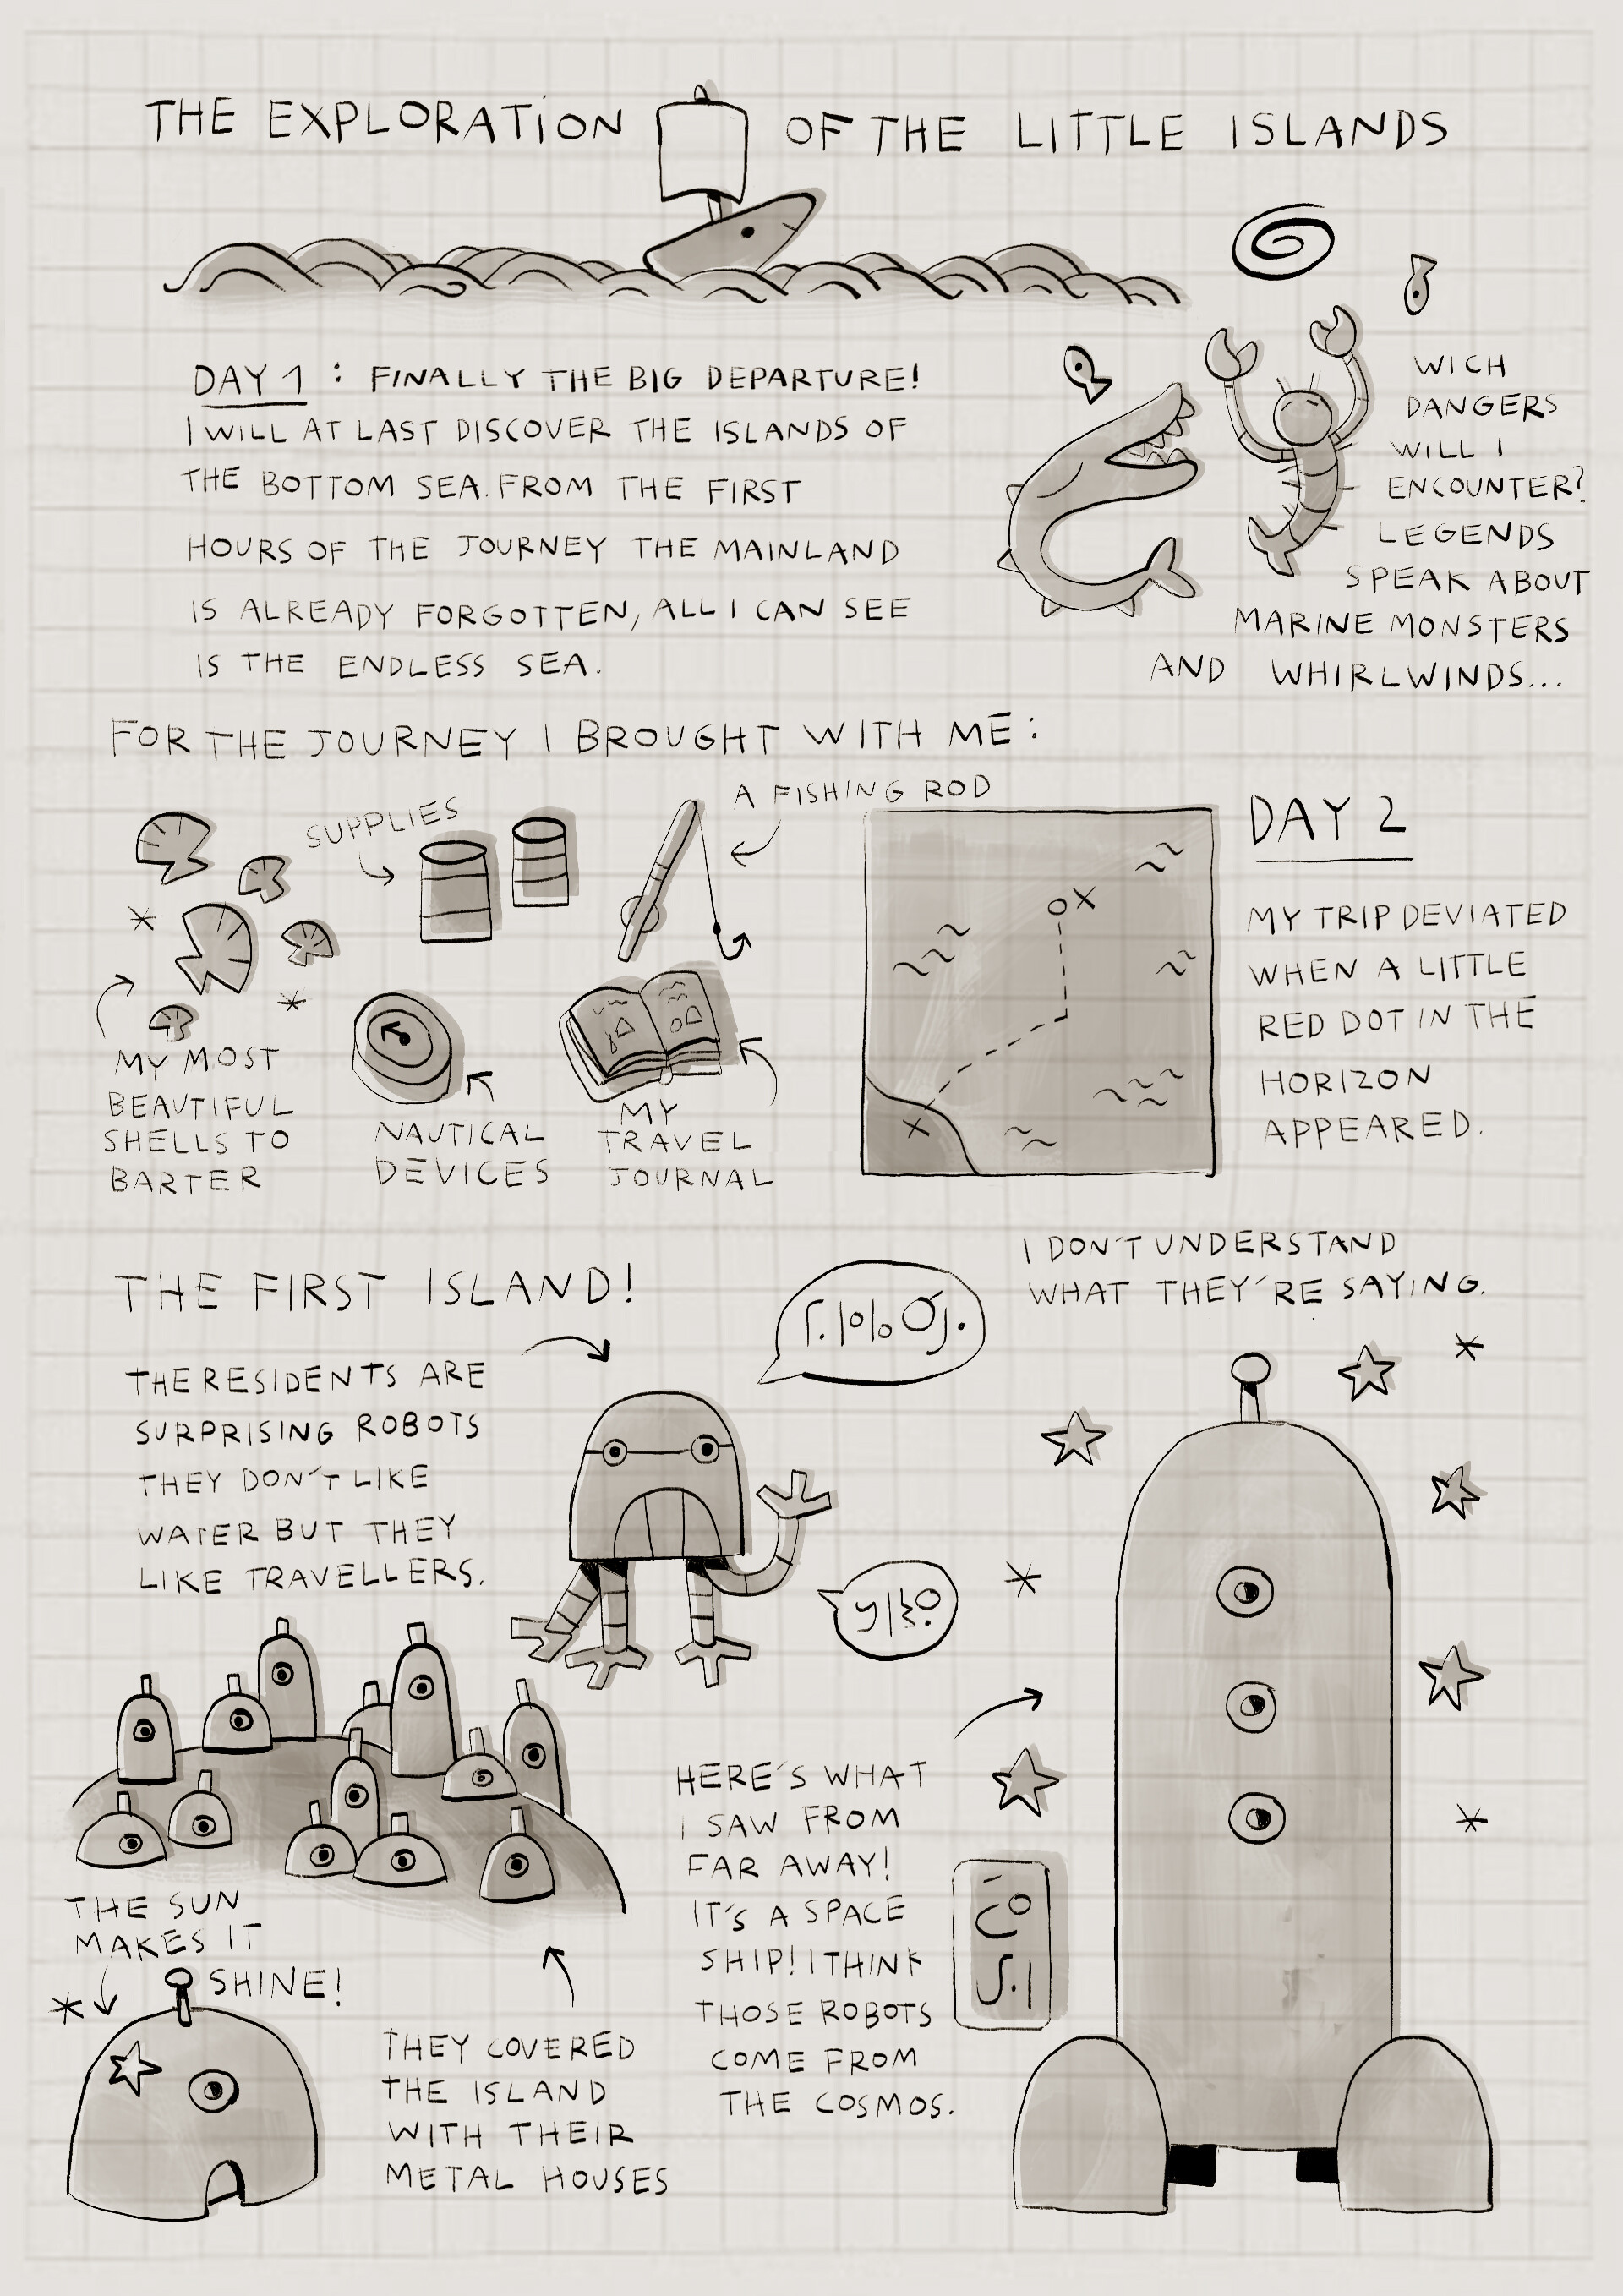 THE EXPLORATION OF THE LITTLE ISLANDS
DAY 1 : FINALLY THE BIG DEPARTURE!
I WILL AT LAST DISCOVER THE ISLANDS OF
THE BOTTOM SEA. FROM THE FIRST
HOURS OF THE JOURNEY THE MAINLAND
IS ALREADY FORGOTTEN, ALL I CAN SEE
IS THE ENDLESS SEA.
WICH
DANGERS
WILL I
ENCOUNTER?
LEGENDS
SPEAK ABOUT
MARINE MONSTERS
AND WHIRLWINDS...
FOR THE JOURNEY I BROUGHT WITH ME:
SUPPLIES
A FISHING ROD
MY MOST
BEAUTIFUL
SHELLS TO
BARTER
NAUTICAL
DEVICES
MY
TRAVEL
JOURNAL
DAY 2
MY TRIP DEVIATED
WHEN A LITTLE
RED DOT IN THE
HORIZON
APPEARED.
THE FIRST ISLAND!
I DON'T UNDERSTAND
WHAT THEY'RE SAYING.
THE RESIDENTS ARE
SURPRISING ROBOTS
THEY DON'T LIKE
WATER BUT THEY
LIKE TRAVELLERS.
HERE'S WHAT
I SAW FROM
FAR AWAY!
IT'S A SPACE
SHIP! I THINK
THOSE ROBOTS
COME FROM
THE COSMOS.
THE SUN
MAKES IT
SHINE!
THEY COVERED
THE ISLAND
WITH THEIR
METAL HOUSES